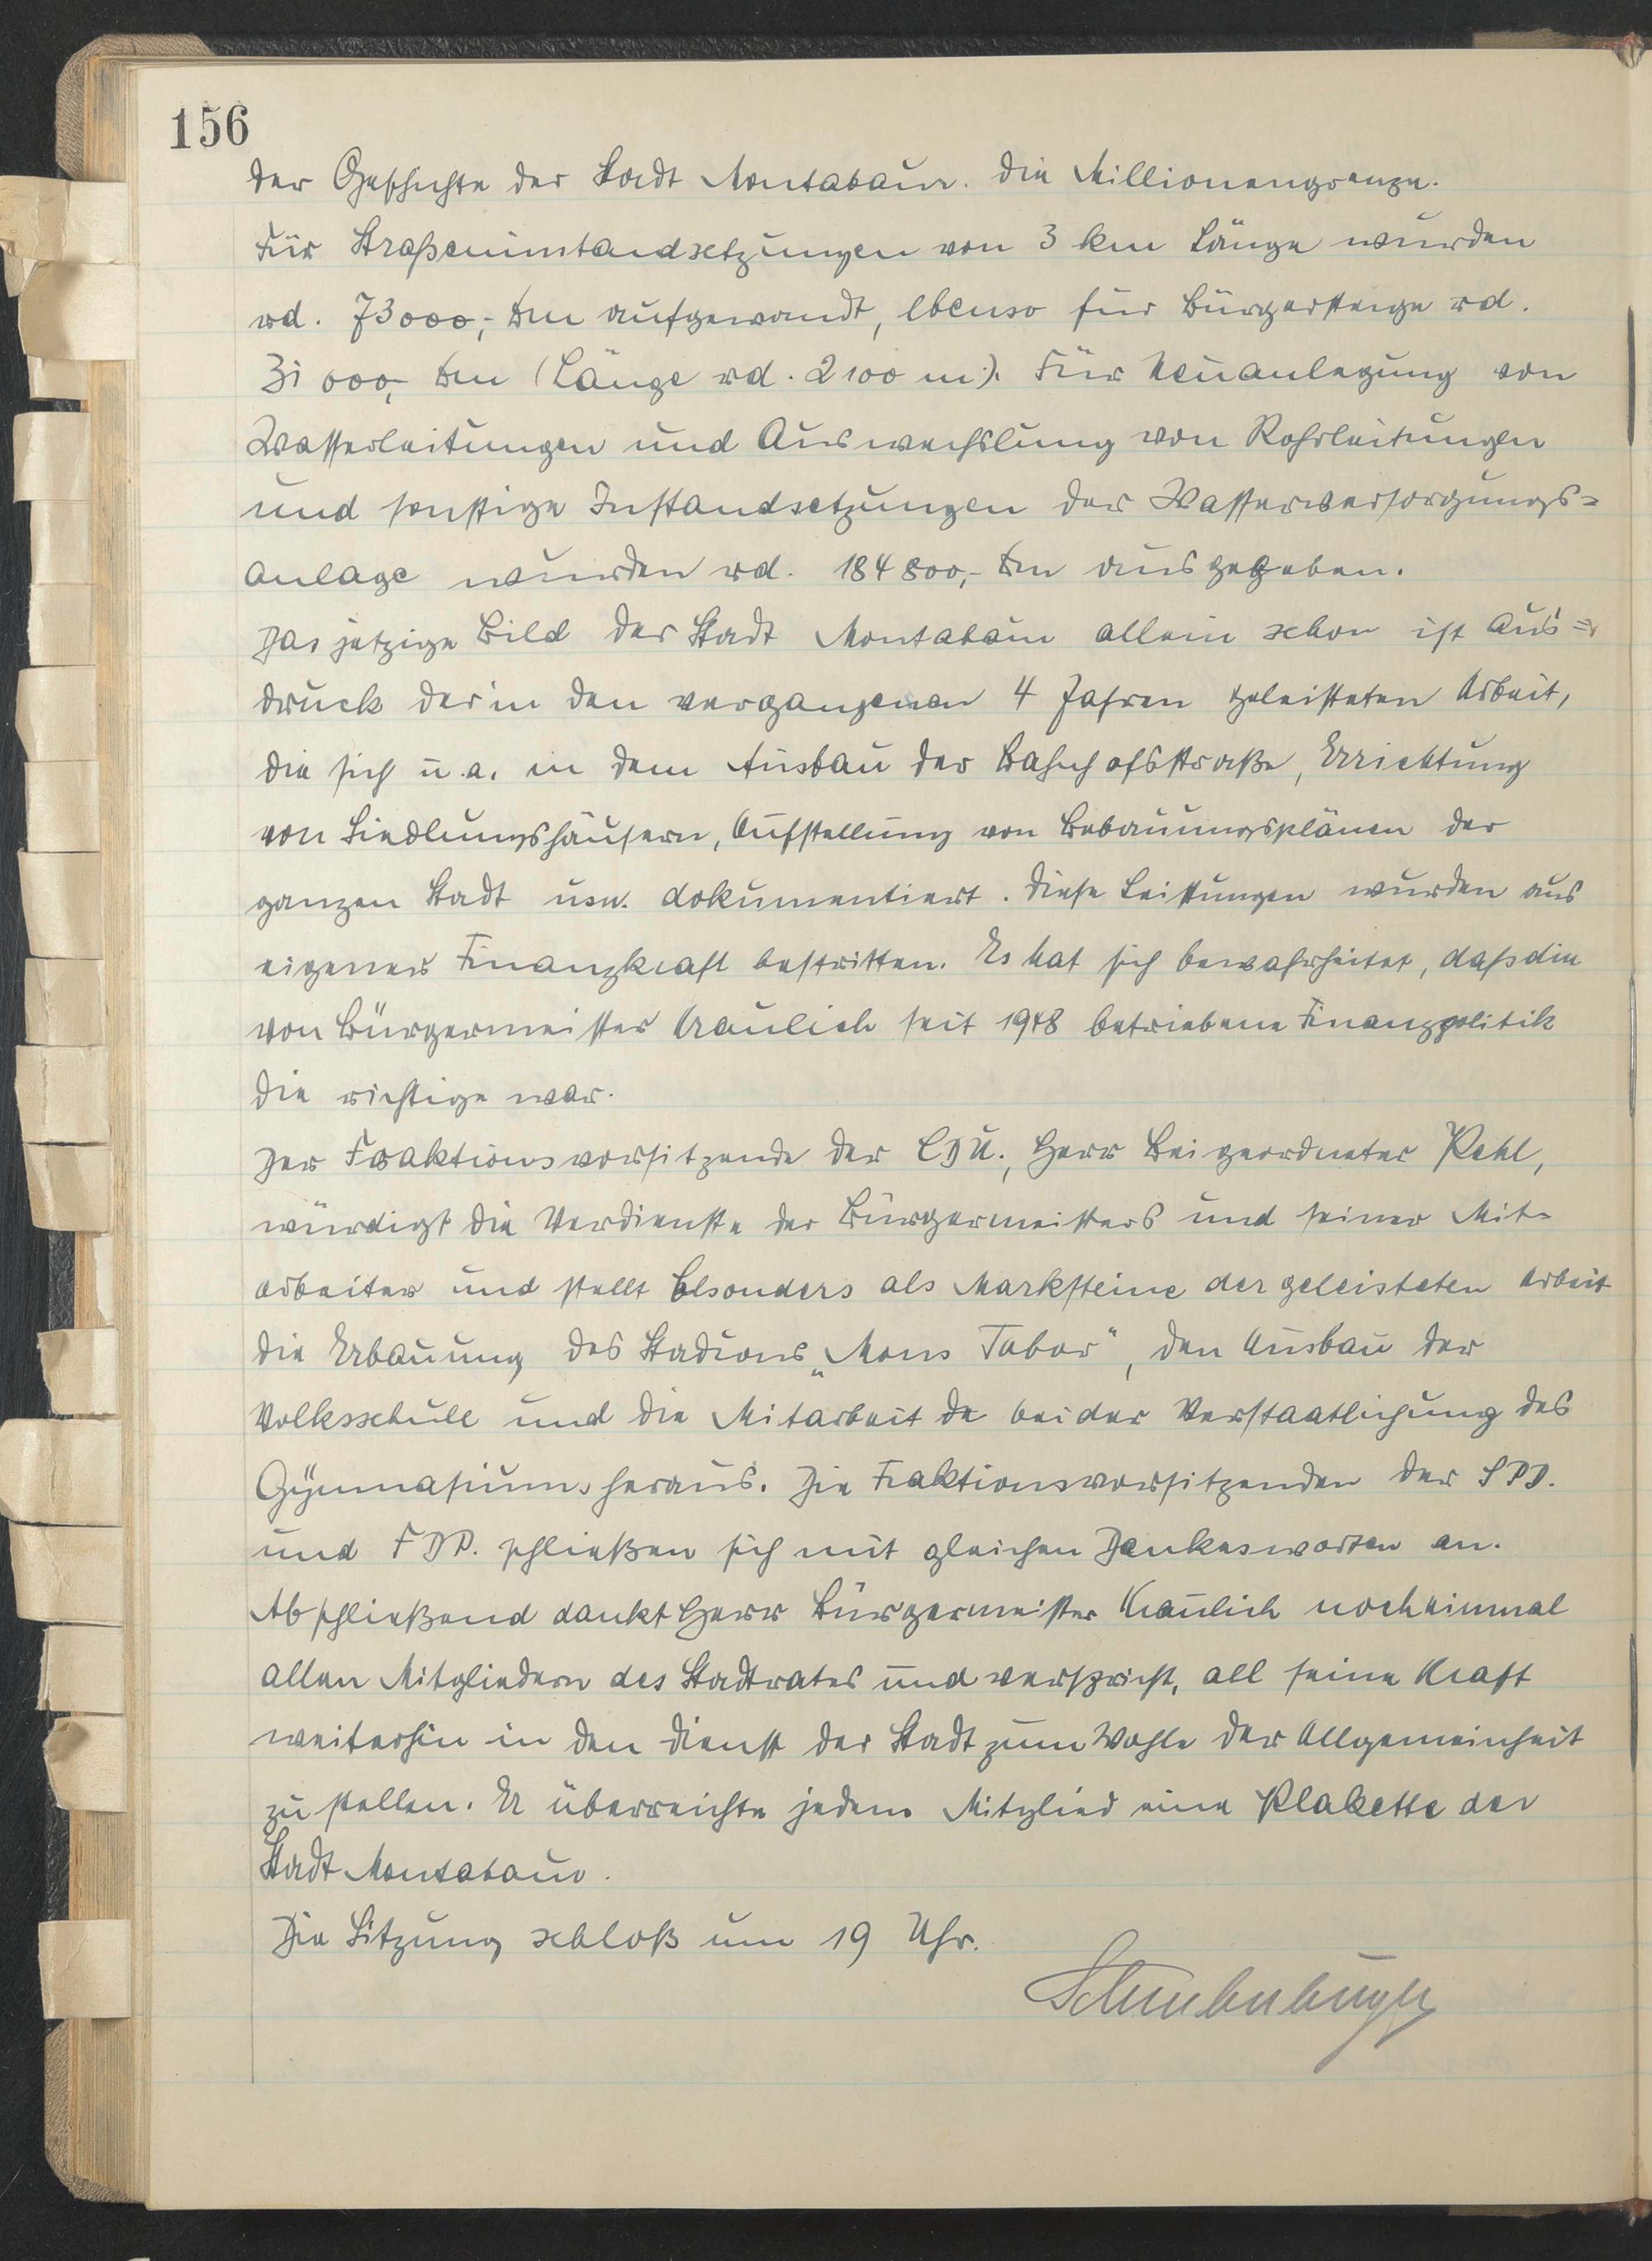 156
der Geschichte der Stadt Montabaur. die Millionengrenze.
Für Straßeninstandsetzungen von 3 km Länge wurden
rd. 73000,- Dm aufgewandt, ebenso für Bürgersteige rd.
31 000,- Dm (Länge rd. 2100 m). Für Neuanlegung von
Wasserleitungen und Auswechslung von Rohrleitungen
und sonstige Instandsetzungen der Wasserversorgungs=
anlage wurden rd. 184 800,- Dm ausgegeben.
Das jetzige Bild der Stadt Montabaur allein schon ist Aus=
druck der in den vergangenen 4 Jahren geleisteten Arbeit,
die sich u. a. in dem Ausbau der Bahnhofsstraße, Errichtung
von Siedlungshäusern, Aufstellung von Bebauungsplänen der
ganzen Stadt usw. dokumentiert. Diese Leistungen wurden aus
eigener Finanzkraft bestritten. Es hat sich bewahrheitet, daß die
von Bürgermeister Kraulich seit 1948 betriebene Finanzpolitik
die richtige war.
Der Fraktionsvorsitzende der CDU., Herr Beigeordneter Pehl,
würdigt die Verdienste der Bürgermeisters und seiner Mit-
arbeiter und stellt besonders als Marksteine der geleisteten Arbeit
die Erbauung des Stadions „Mons Tabor", den Ausbau der
Volksschule und die Mitarbeit de bei der Verstaatlichung des
Gymnasiums heraus. Die Fraktionsvorsitzenden der SPD.
und FDP. schließen sich mit gleichen Dankesworten an.
Abschließend dankt Herr Bürgermeister Kraulich noch einmal
allen Mitgliedern des Stadtrates und verspricht, all seine Kraft
weiterhin in den Dienst der Stadt zum Wohle der Allgemeinheit
zu stellen. Er überreichte jedem Mitglied eine Plakette der
Stadt Montabaur.
Die Sitzung schloß um 19 Uhr.